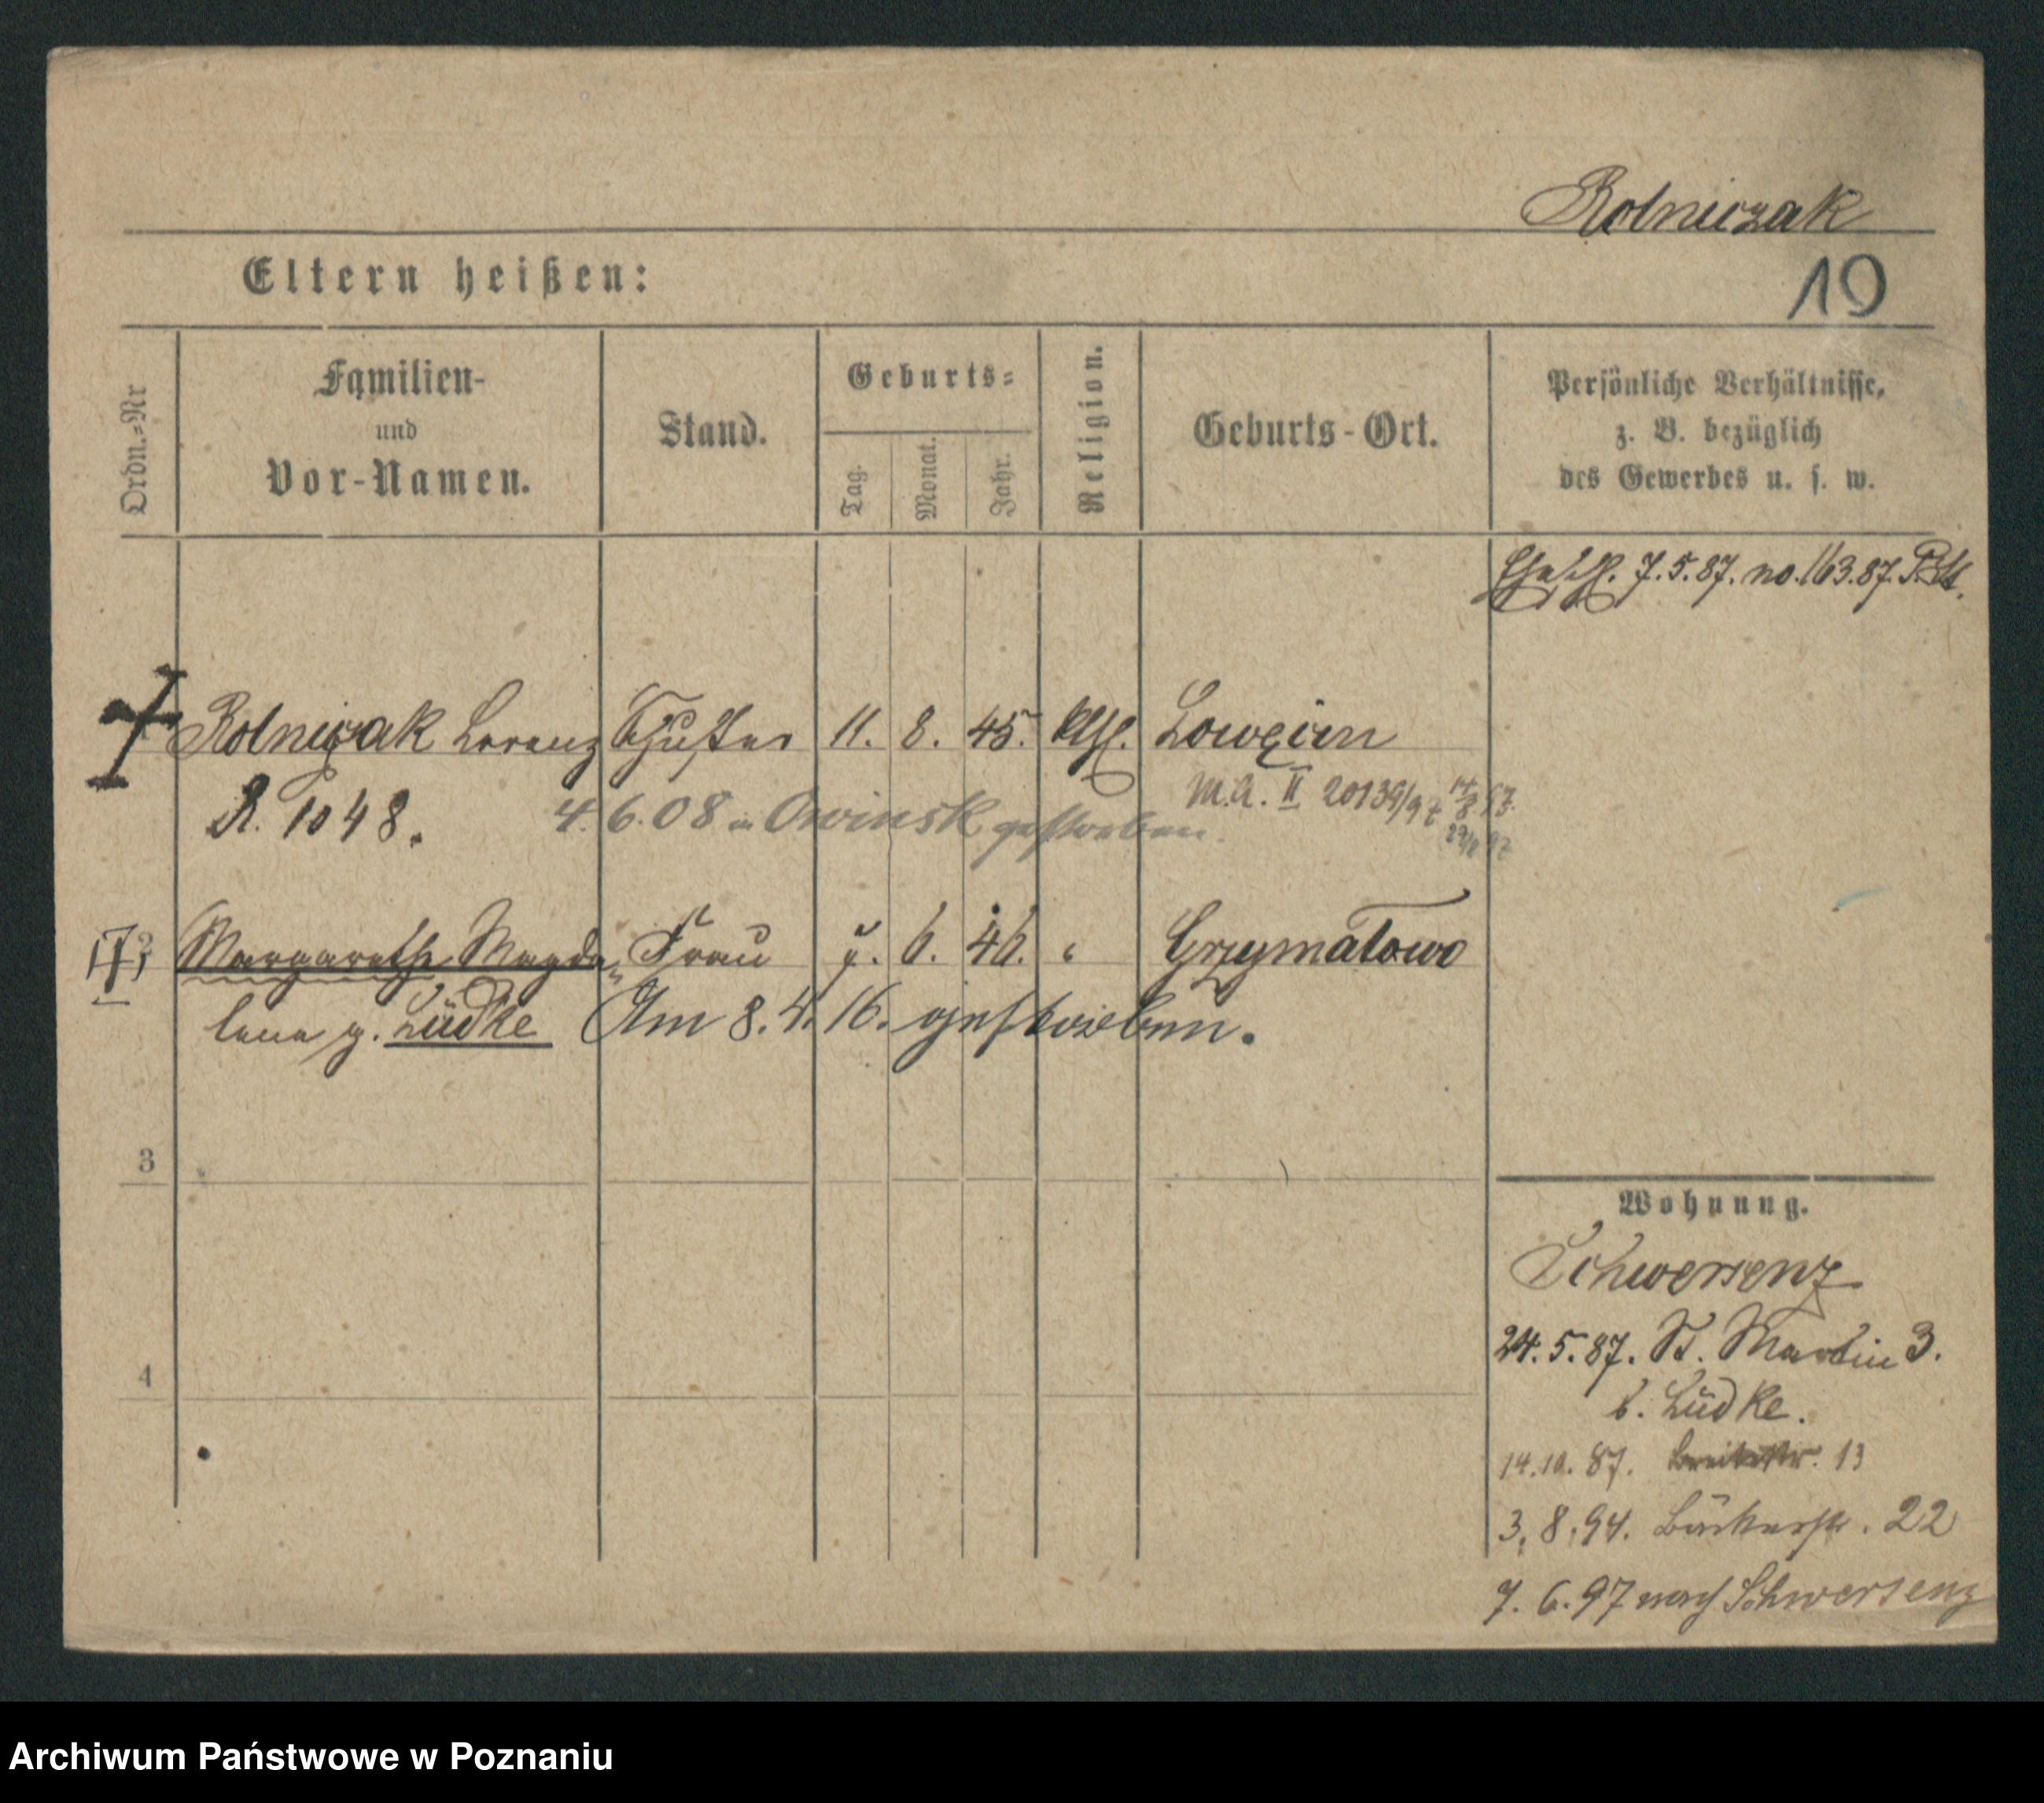 Rolniczak
19
Eltern heißen:
Ordn.-Nr
Familien-
und
Vor-Namen.
Stand.
Geburts-
Tag.
Monat.
Jahr.
Religion.
Geburts-Ort.
Persönliche Verhältnisse,
z. B. bezüglich
des Gewerbes u. s. w.
7.5.87. no. 163.87.
Rolniczak Lorenz Schuster 11. 8. 45. kth. Lowęcin
R. 1048.
M.A. II 20139/97
4.6.08 in Owinsk gestorben.
2 Margarethe Magda- Frau 7. 6. 46. " Grzymałowo
lena g. Lüdke Am 8.4.16. gestorben.
3
4
Wohnung.
Schwersenz
24.5.87. St. Martin 3.
b. Lüdke.
14.10.87. Breitestr. 13
3.8.94. Bäckerstr. 22
7.6.97 nach Schwersenz
Archiwum Państwowe w Poznaniu